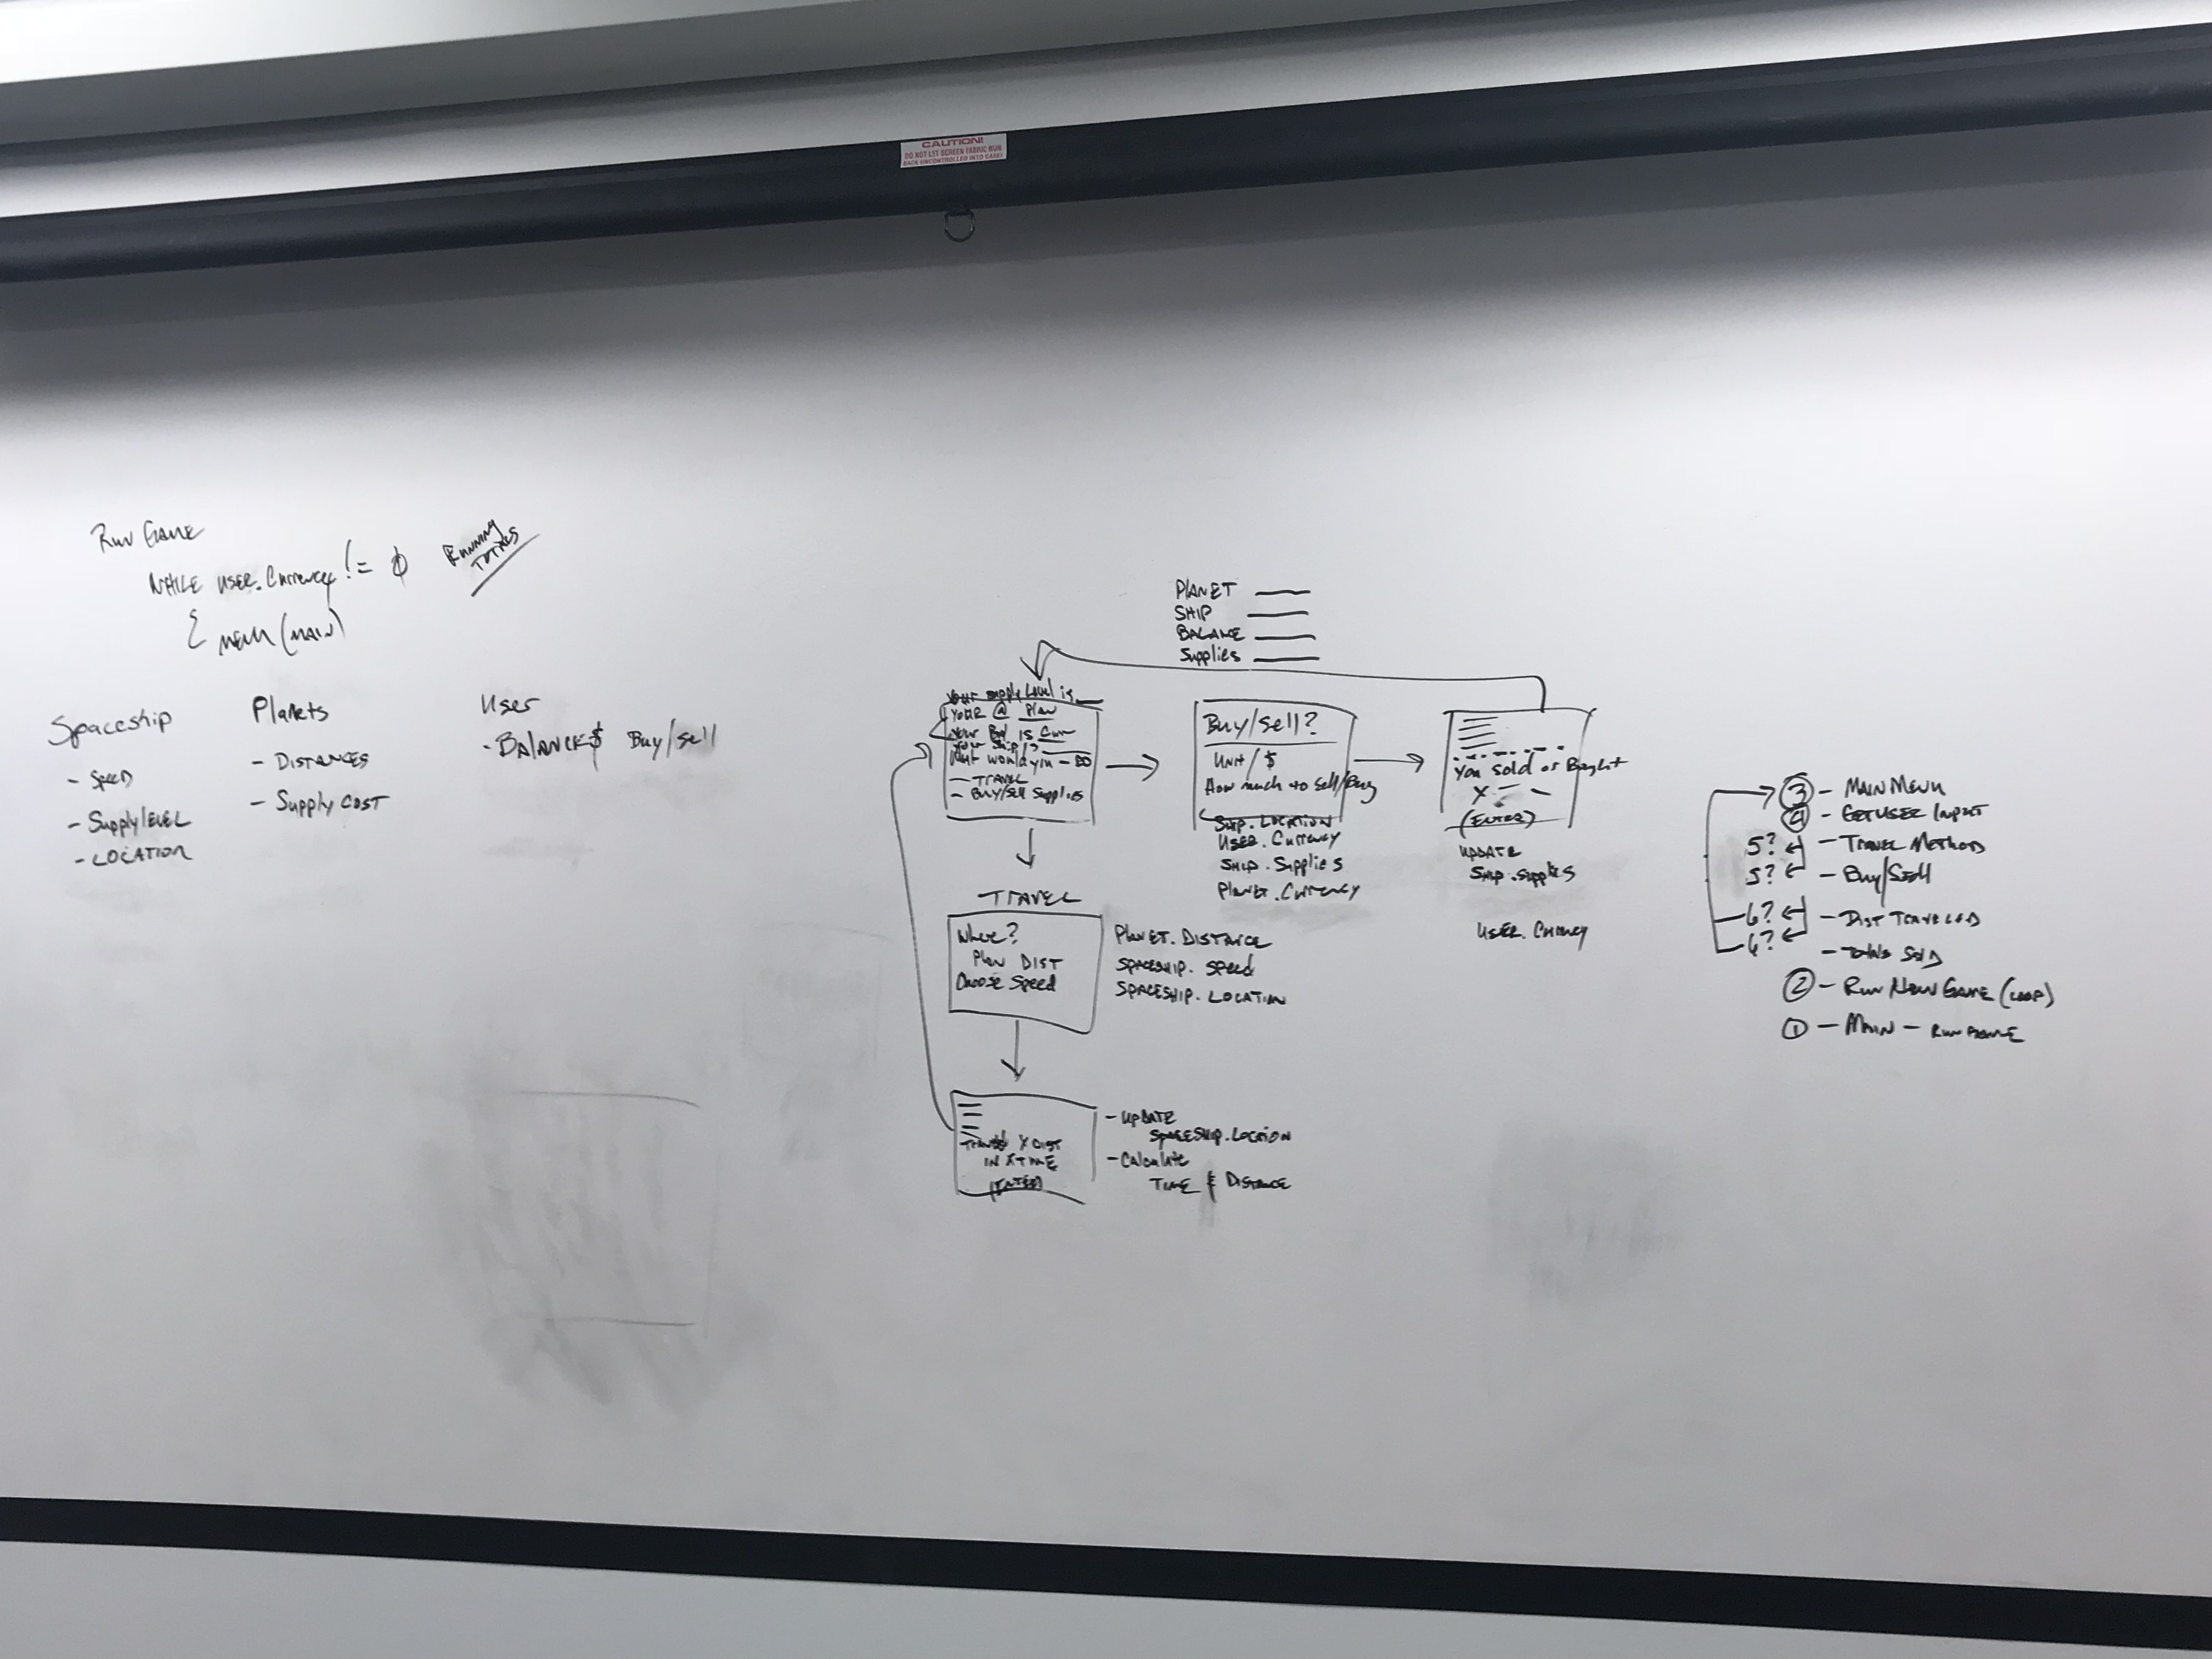 CAUTION!
DO NOT LET SCREEN FABRIC RUN
BACK UNCONTROLLED INTO CASE!
Run Game
While user.Currency != 0
{ menu (main)
Running
Totals
Spaceship
- Speed
- Supply level
- Location
Planets
- Distances
- Supply Cost
User
- Balance $ Buy/sell
Planet
Ship
Balance
Supplies
Your supply level is
Your @ Plan
Your Bal is Curr
Your Ship is
What would you - Do
- Travel
- Buy/Sell Supplies
Buy/Sell?
Unit/$
How much to Sell/Buy
Ship.Location
User.Currency
Ship.Supplies
Planet.Currency
You sold or Bought
X
(Enter)
Update
Ship.Supplies
User.Currency
Travel
Where?
Plan Dist
Choose Speed
Planet.Distance
Spaceship.Speed
Spaceship.Location
Travel X Dist
in X Time
(Enter)
- Update
Spaceship.Location
- Calculate
Time & Distance
3 - Main Menu
4 - Get User Input
5? - Travel Method
5? - Buy/Sell
6? - Dist Traveled
6? - Totals Sold
2 - Run New Game (Loop)
1 - Main - Run Game